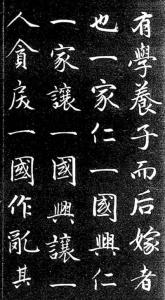 有學養子而后嫁者
也一家仁一國興仁
一家讓一國興讓一
人貪戾一國作亂其